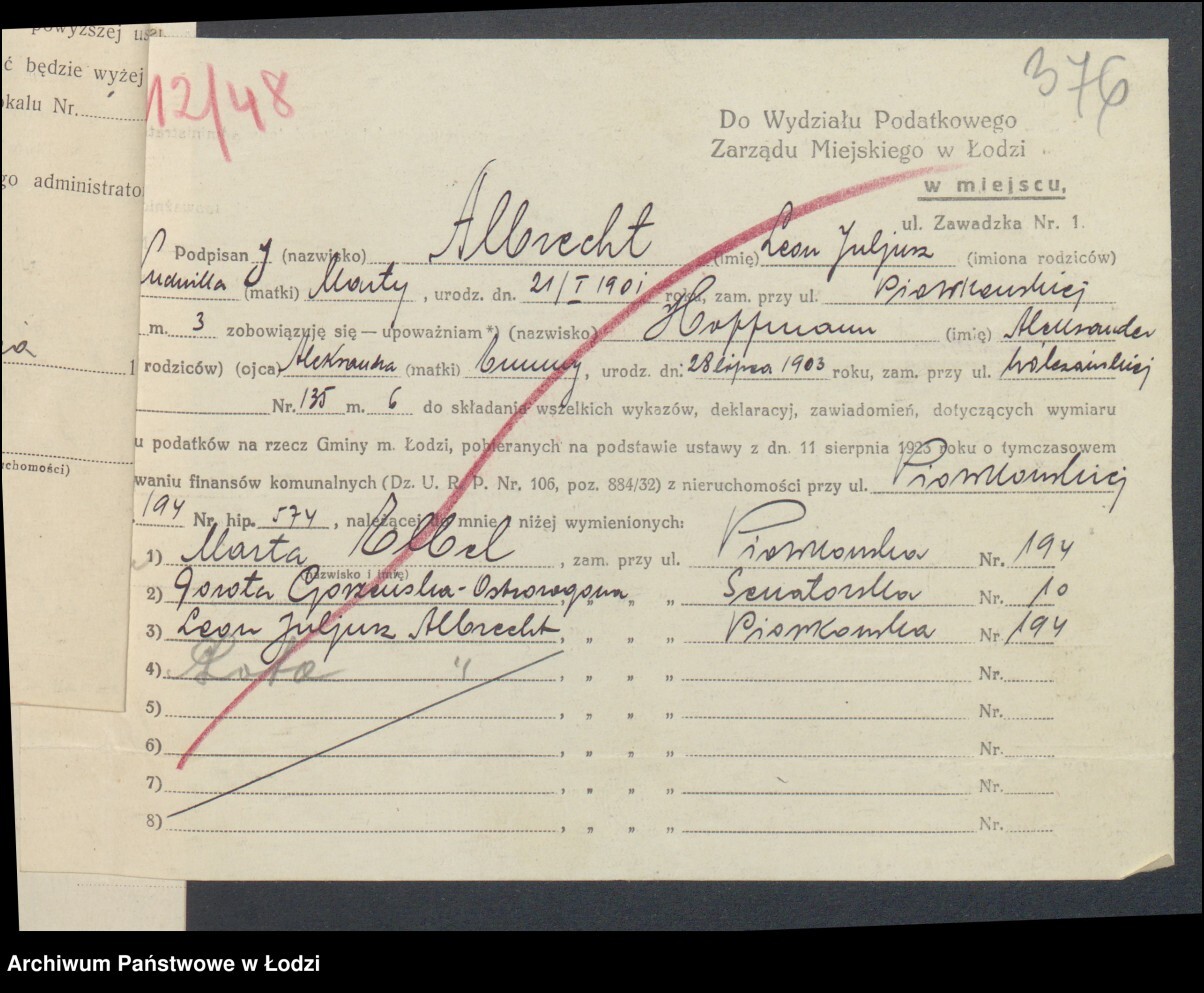 powyższej
ć będzie wyżej
okalu Nr.
go administrato
uchomości)
12/48
376
Do Wydziału Podatkowego
Zarządu Miejskiego w Łodzi
w miejscu,
ul. Zawadzka Nr. 1.
Podpisan y (nazwisko) Albrecht (imię) Leon Juljusz (imiona rodziców)
(matki) Marty, urodz. dn. 21/I 1901 roku, zam. przy ul. Piotrkowskiej
m. 3 zobowiązuję się — upoważniam *) (nazwisko) Hoffmann (imię) Aleksander
rodziców) (ojca) Aleksandra (matki) Emmy, urodz. dn. 28 lipca 1903 roku, zam. przy ul. Wólczańskiej
Nr. 135 m. 6 do składania wszelkich wykazów, deklaracyj, zawiadomień, dotyczących wymiaru
u podatków na rzecz Gminy m. Łodzi, pobieranych na podstawie ustawy z dn. 11 sierpnia 1923 roku o tymczasowem
waniu finansów komunalnych (Dz. U. R. P. Nr. 106, poz. 884/32) z nieruchomości przy ul. Piotrkowskiej
194 Nr. hip. 574, należącej do mnie niżej wymienionych:
1) Marta Elbel, zam. przy ul. Piotrkowska Nr. 194
(nazwisko i imię)
2) Dorota Gorzeńska-Ostrorogowa, „ „ „ Senatorska Nr. 10
3) Leon Juljusz Albrecht, „ „ „ Piotrkowska Nr. 194
4) „ , „ „ „ Nr.
5) , „ „ „ Nr.
6) , „ „ „ Nr.
7) , „ „ „ Nr.
8) , „ „ „ Nr.
Archiwum Państwowe w Łodzi